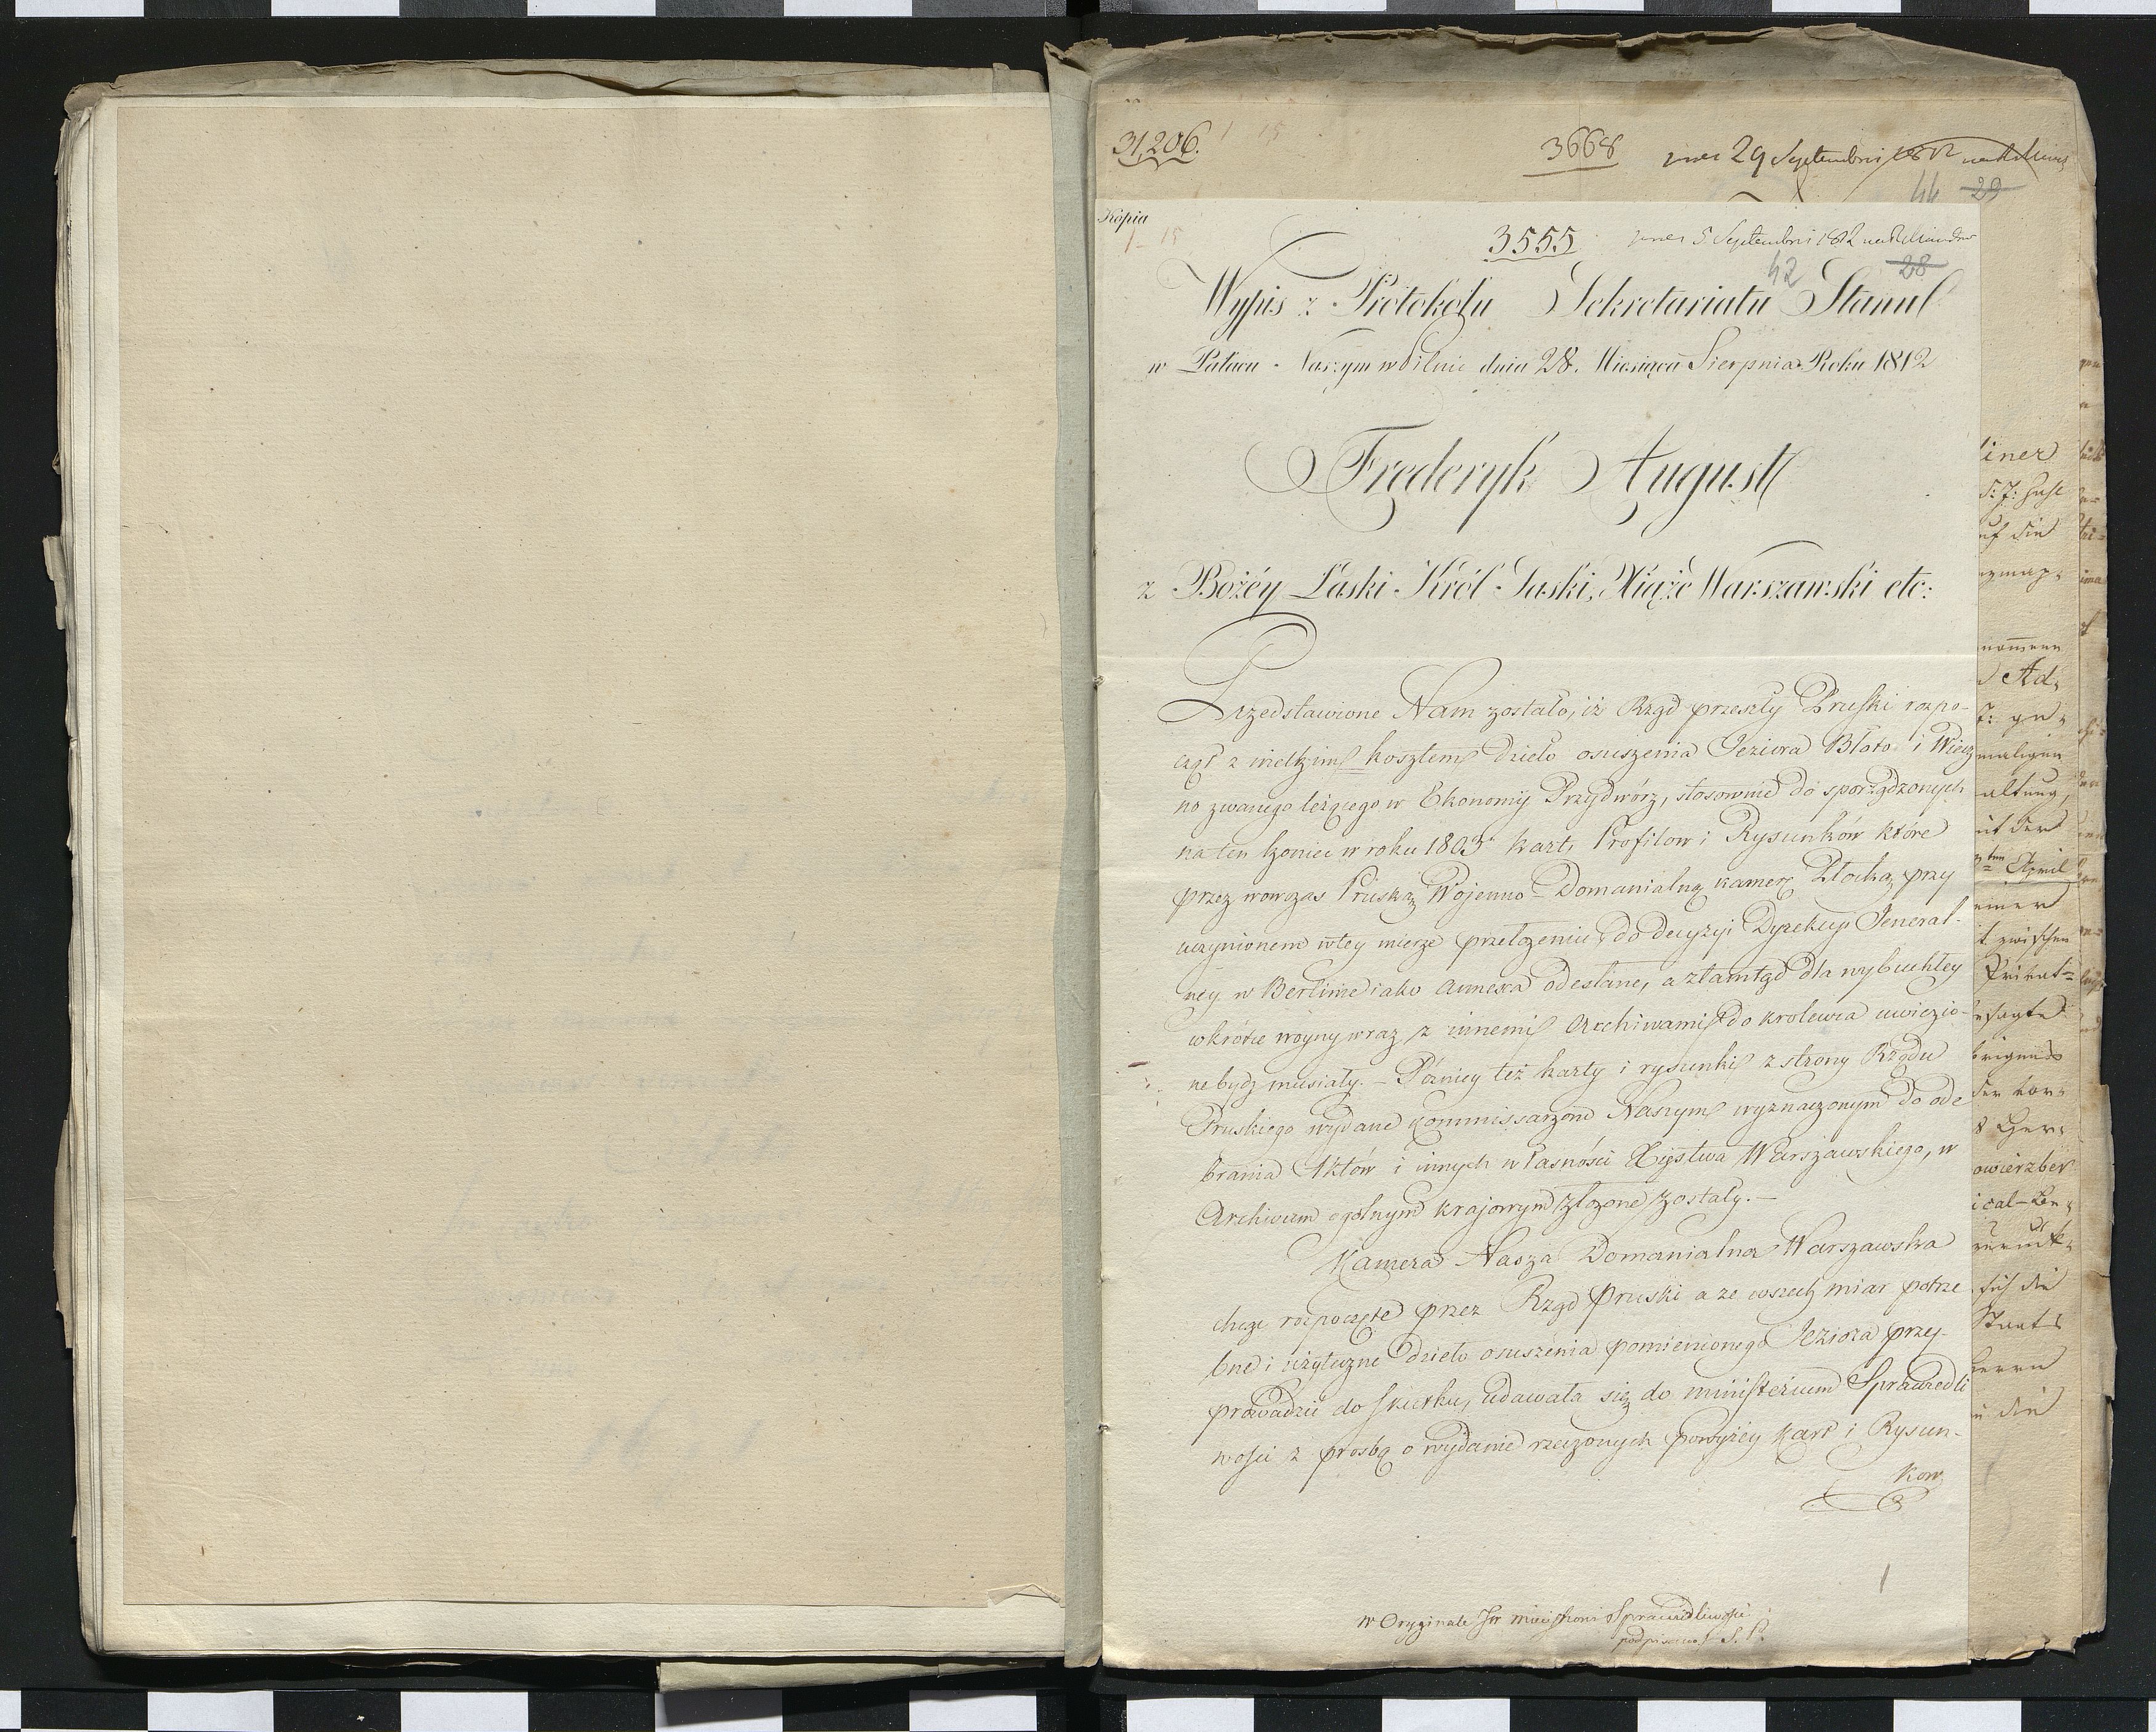 31,206.
3668 29 Septembris
44 29
Kopia
3555 5 Septembris 1812
42 28
Wypis z Protokołu Sekretariatu Stanu
w Pałacu Naszym w Pilnic dnia 28. Miesiąca Sierpnia Roku 1812
Frederyk August
z Bożéy Łaski Król Saski, Xiąże Warszawski etc:
Przedstawione Nam zostało, iż Rząd przeszły Pruski rozpo-
czął z wielkim kosztem dzieło osuszenia Jeziora Błoto i Wiecz
no zwanego leżącego w Ekonomij Przydwórz, stosownie do sporządzonych
na ten koniec w roku 1803 kart, Profilow i Rysunków które
przez wowczas Pruską Wojenno-Domanialną kamerę Płocką przy
uczynionem w tey mierze przełożeniu, do decyzyi Dyrekcyi Jeneral-
ney w Berlinie iako annexa odesłane, a ztamtąd dla wybuchłey
wkrótce woyny wraz z innemi Archiwami do krolewca uwiezio-
ne bydz musiały. – Pózniey też karty i rysunki z strony Rządu
Pruskiego wydane kommissarzom Naszym wyznaczonym do ode
brania Aktów i innych własności Xięstwa Warszawskiego, w
Archiwum ogolnym krajowym złożone zostały. –
Kamera Nasza Domanialna Warszawska
chcąc rozpoczęte przez Rząd Pruski a ze wszech miar potrze
bne i użyteczne dzieło osuszenia pomienionego Jeziora przy-
prowadzić do skutku, udawała się do ministerium Sprawiedli
wości z prosbą o wydanie rzeczonych powyżéy kart i Rysun-
kow
1
w Oryginale Sprawiedliwości
podpisano S. P.
iner
uf die
Ad,
maligen
altung,
ut der
ten April
einer
t zwischen
Privat=
sagte
der vor=
ical-
zurück-
sich die
Staats
Herrn
die